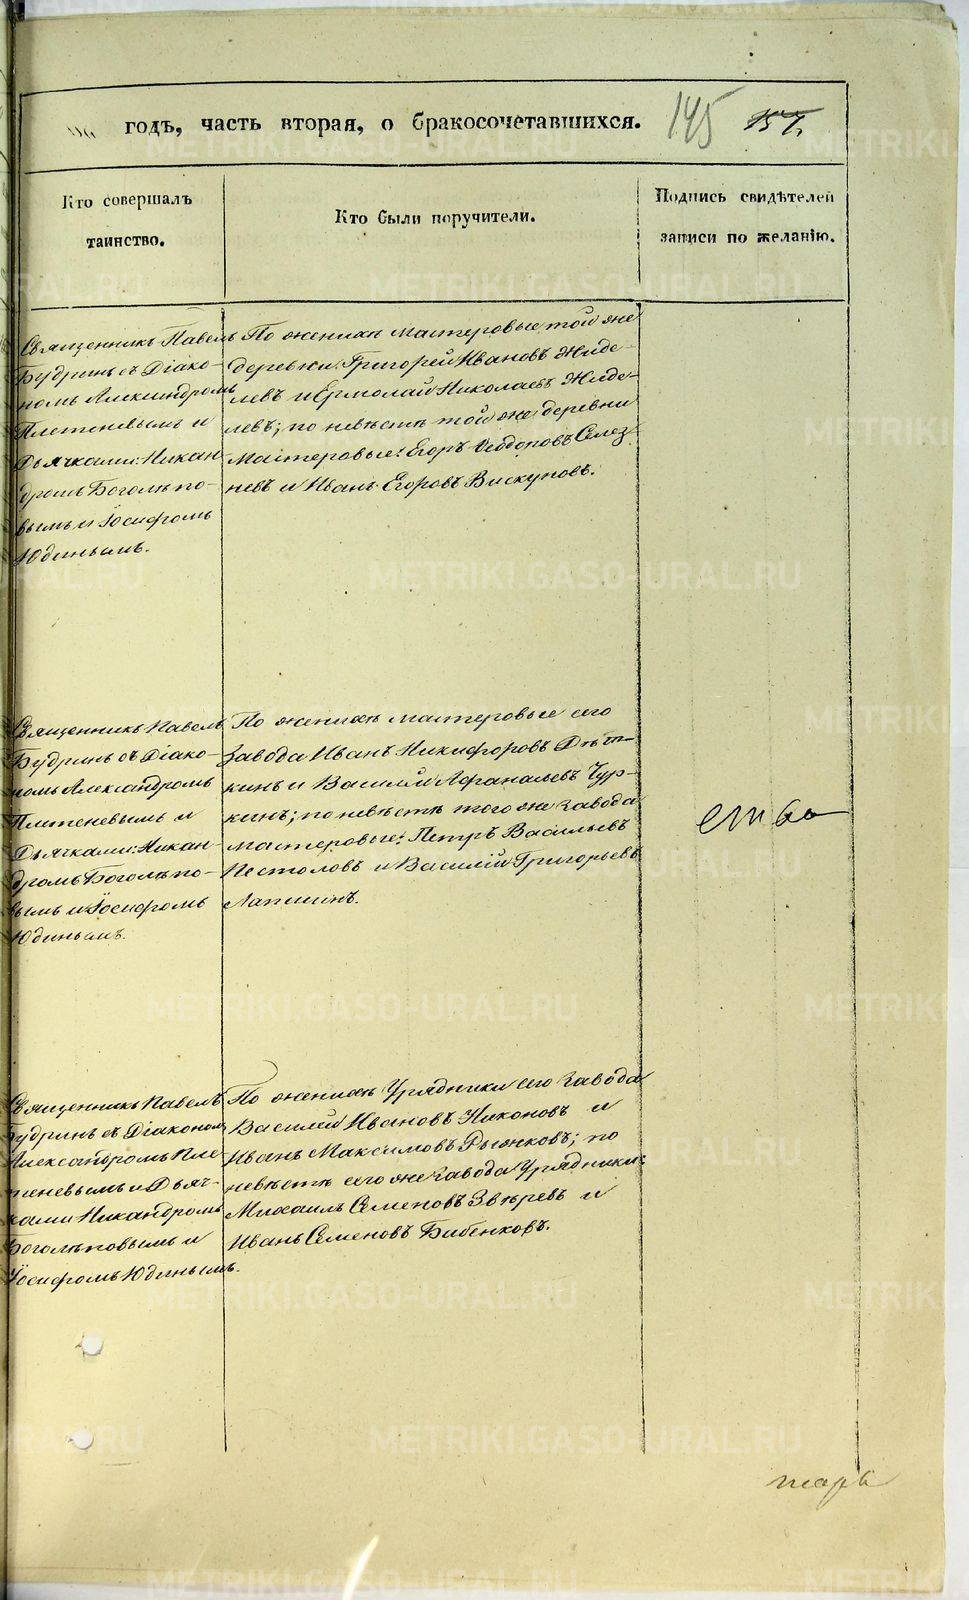 годъ, часть вторая, о бракосочетавшихся.
145
157.
Кто совершалъ
таинство.
Кто были поручители.
Подпись свидѣтелей
записи по желанію.
Священникъ Павелъ
Будринъ съ Діако-
номъ Александромъ
Плетеневымъ и
Дьячками: Никан-
дромъ Боголѣпо-
вымъ и Іосифомъ
Юдинымъ.
По женихѣ мастеровые той же
деревни: Григорей Ивановъ Жиде-
левъ и Ермолай Николаевъ Жиде-
левъ; по невѣстѣ той же деревни
Мастеровые: Егоръ Ѳедоровъ Селез-
невъ и Иванъ Егоровъ Вискуновъ.
Священникъ Павелъ
Будринъ съ Діако-
номъ Александромъ
Плетеневымъ и
Дьячками: Никан-
дромъ Боголѣпо-
вымъ и Іосифомъ
Юдинымъ.
По женихѣ мастеровые сего
завода Иванъ Никифоровъ
кинъ и Василій Афанасьевъ Чур-
кинъ; по невѣстѣ того же завода
мастеровые: Петръ Васильевъ
Пестоловъ и Василій Григорьевъ
Лапшинъ.
ство
Священникъ Павелъ
Будринъ съ Діакономъ
Александромъ Пле-
теневымъ и Дьяч-
ками Никандромъ
Боголѣповымъ и
Іосифомъ Юдинымъ.
По женихѣ Урядники сего завода
Василій Ивановъ Никоновъ и
Иванъ Максимовъ Рыжковъ; по
невѣстѣ сего же завода Урядники:
Михаилъ Семеновъ Звѣревъ и
Иванъ Семеновъ Бабенковъ.
METRIKI.GASO-URAL.RU